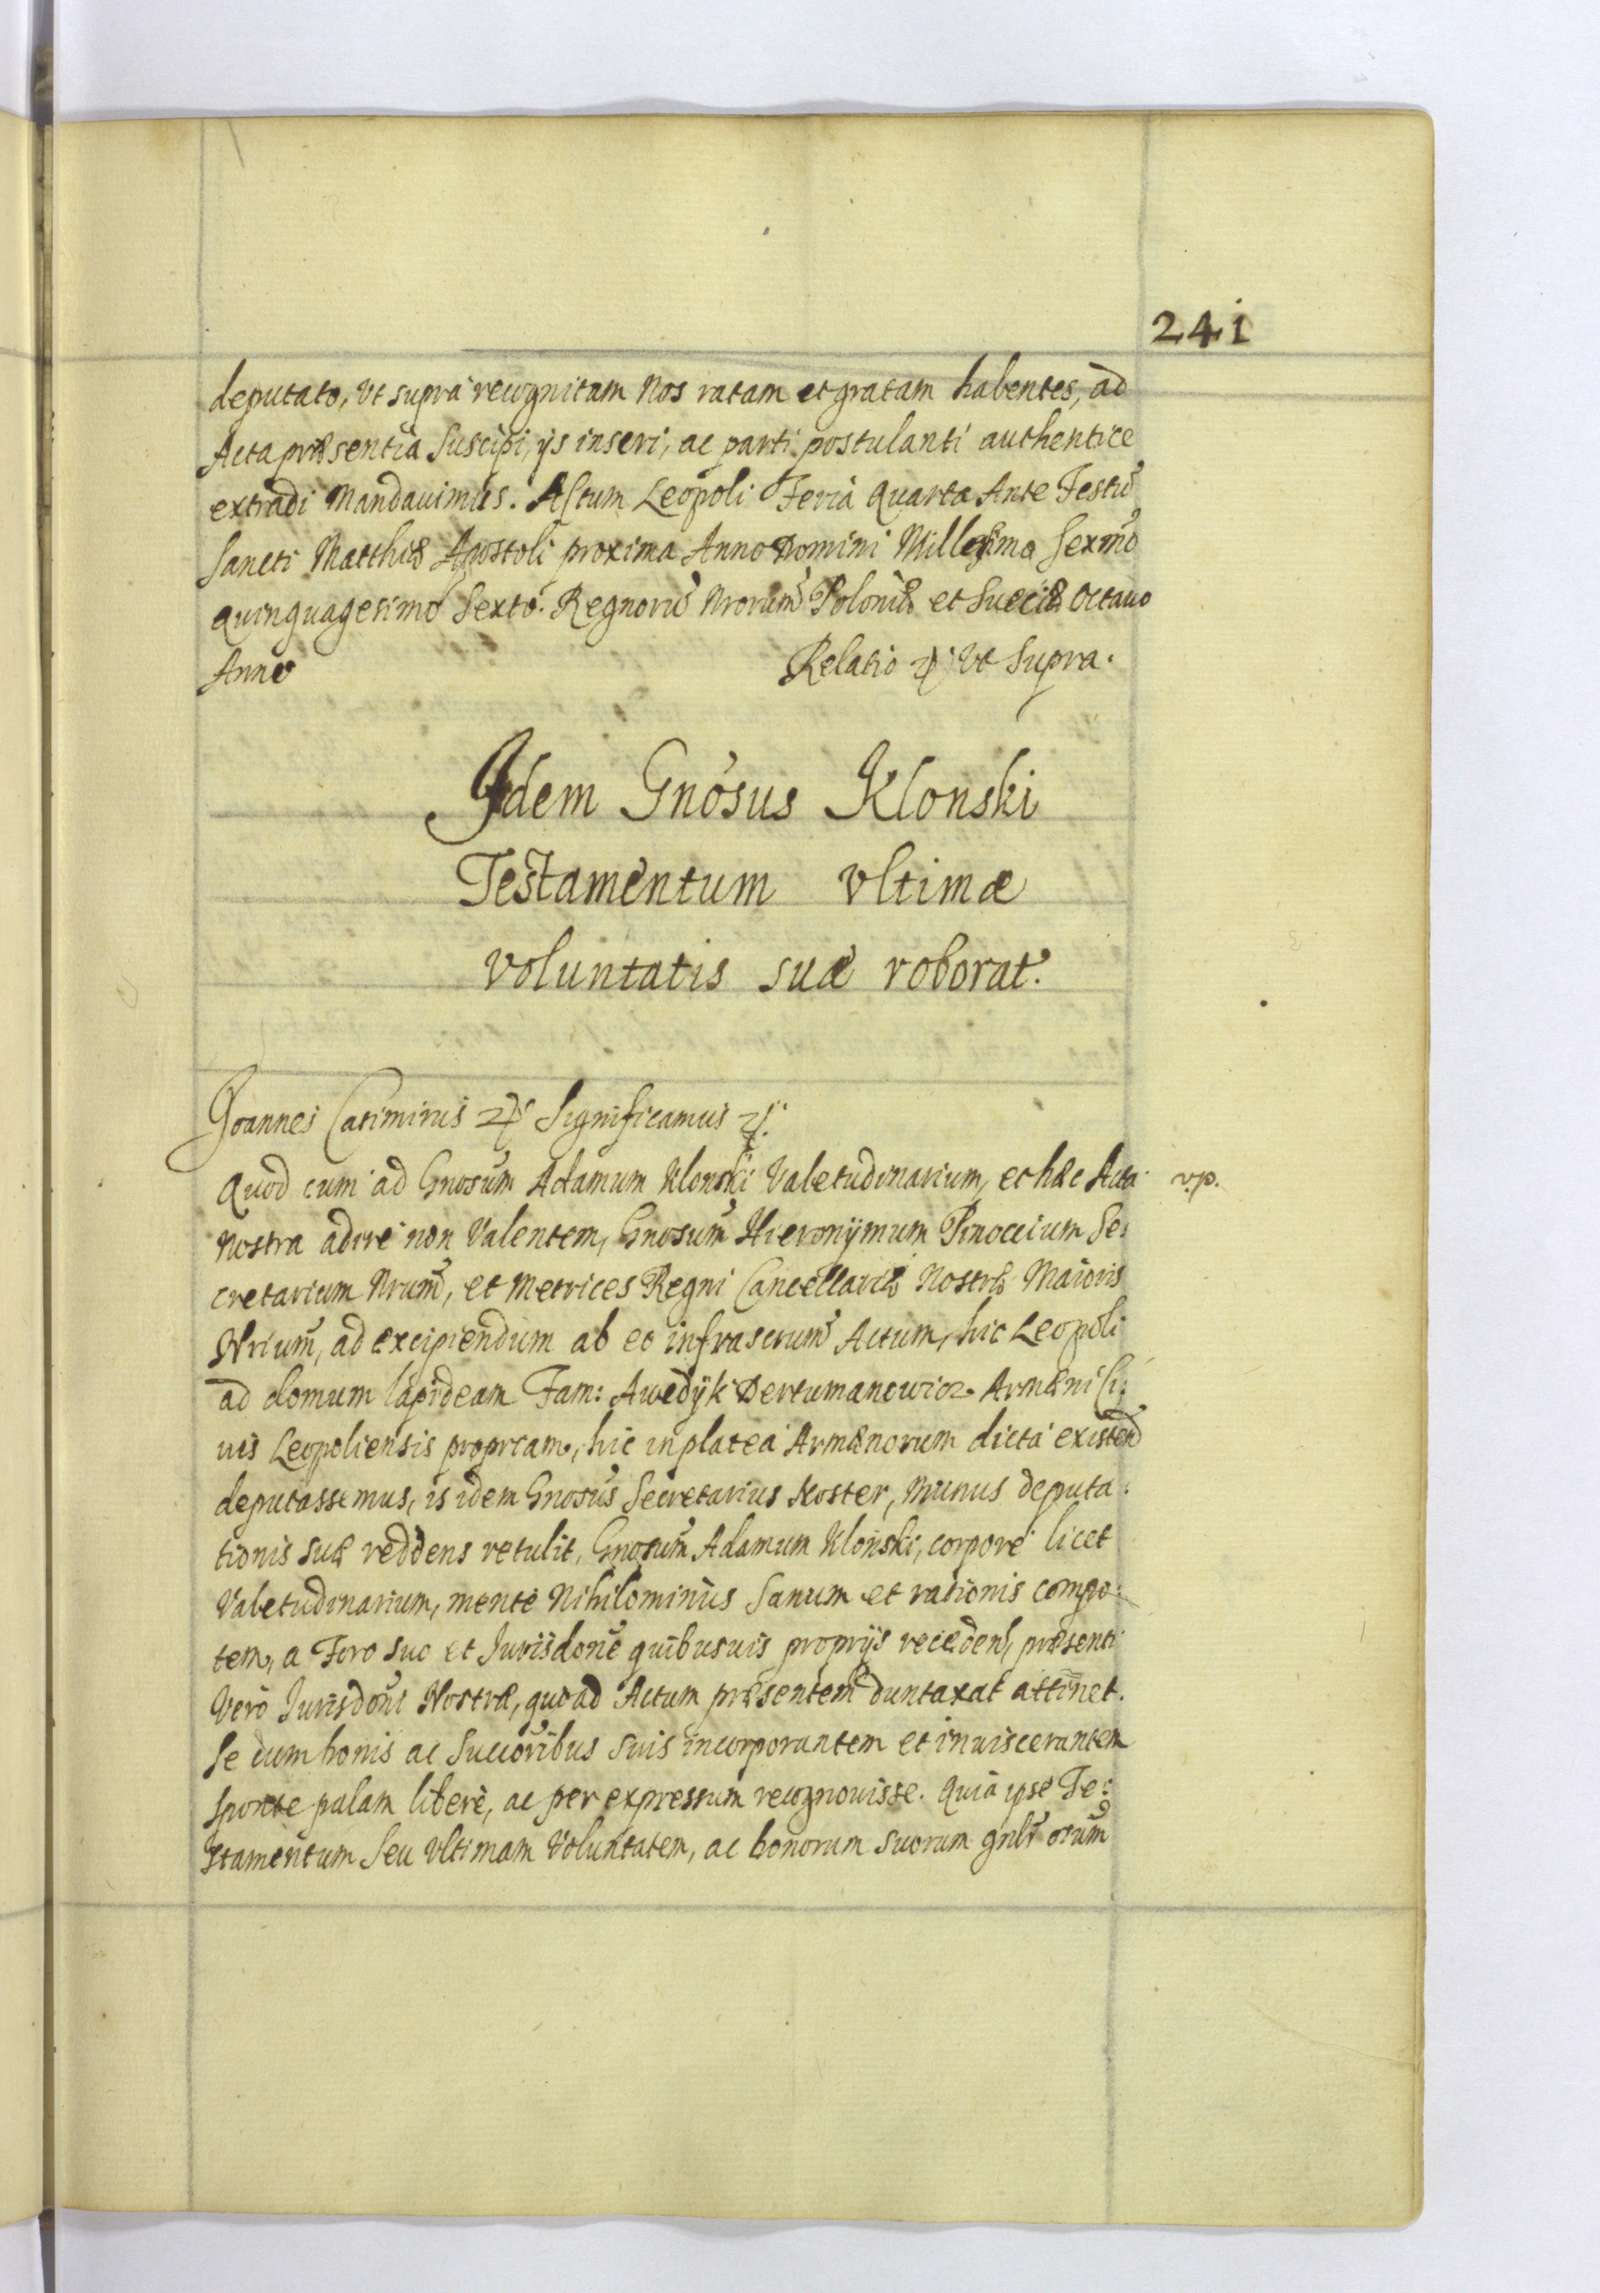 241
deputato, Vt supra recognitam Nos ratam et gratam habentes, ad
Acta præsentia Suscipi, ijs inseri, ac parti postulanti authentice
extradi Mandauimus. Actum Leopoli Feria Quarta Ante Festũ
Sancti Matthiæ Apostoli proxima Anno Domini Millesimo Sexm̃o
Quinquagesimo Sexto. Regnorũ Nrorum̃ Poloniæ et Sueciæ Octauo
Anno Relatio Vt Supra.
Idem Gnõsus Klonski
Testamentum vltimæ
voluntatis suæ roborat.
Joannes Casimirus Significamus
Quod cum ad Gnosum̃ Adamum Klonski Valetudinarium, et hæc Acta v.p.
Nostra adire non Valentem, Gnosum̃ Hieronÿmum Pinoccium Se:
cretarium Nrum̃, et Metrices Regni Cancellariæ Nostræ Maioris
Nrium̃, ad excipiendum ab eo infrascrum̃ Actum, hic Leopoli
ad domum lapideam Fam: Awedÿk Dertumanowicz Armæni Ci:
uis Leopoliensis propriam, hic in platea Armænorum dicta existen̄
deputassemus, is idem Gnosus̃ Secretarius Noster, Munus deputa:
tionis suæ reddens retulit, Gnosum̃ Adamum Klonski, corpore licet
Valetudinarium, mente Nihilominùs Sanum et rationis compo:
tem, a Foro suo et Jurisdonẽ quibusuis proprijs recedens, præsenti
Verò Jurisdonĩ Nostræ, quoad Actum præsentem duntaxat attinet.
Se cum bonis ac Succoribus̃ suis incorporantem et inuiscerantem
sponte palam liberè, ac per expressum recognouisse. Quia ipse Te:
stamentum Seu Vltimam Voluntatem, ac bonorum suorum gnlr̃ oium̃